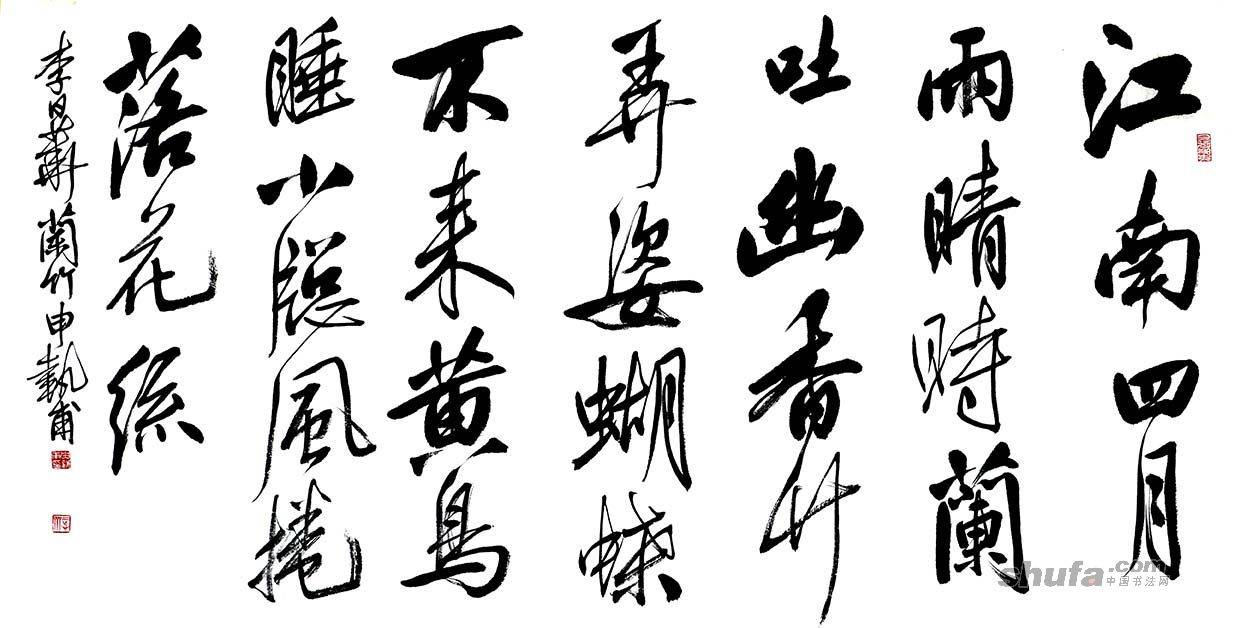 江南四月
雨晴時蘭
吐幽香竹
弄姿蝴蝶
不来黄鳥
睡小牕風捲
落花絲
李日華蘭竹申執甫
shufa.com
中国书法网